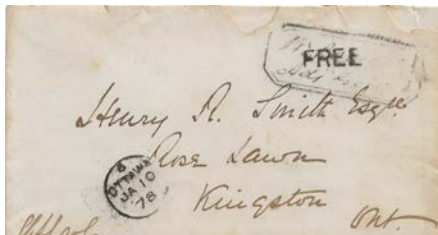 FREE
Henry R. Smith Esqre
Rose Lawn
Kingston
Ont.
6
OTTAWA
JA 10
78